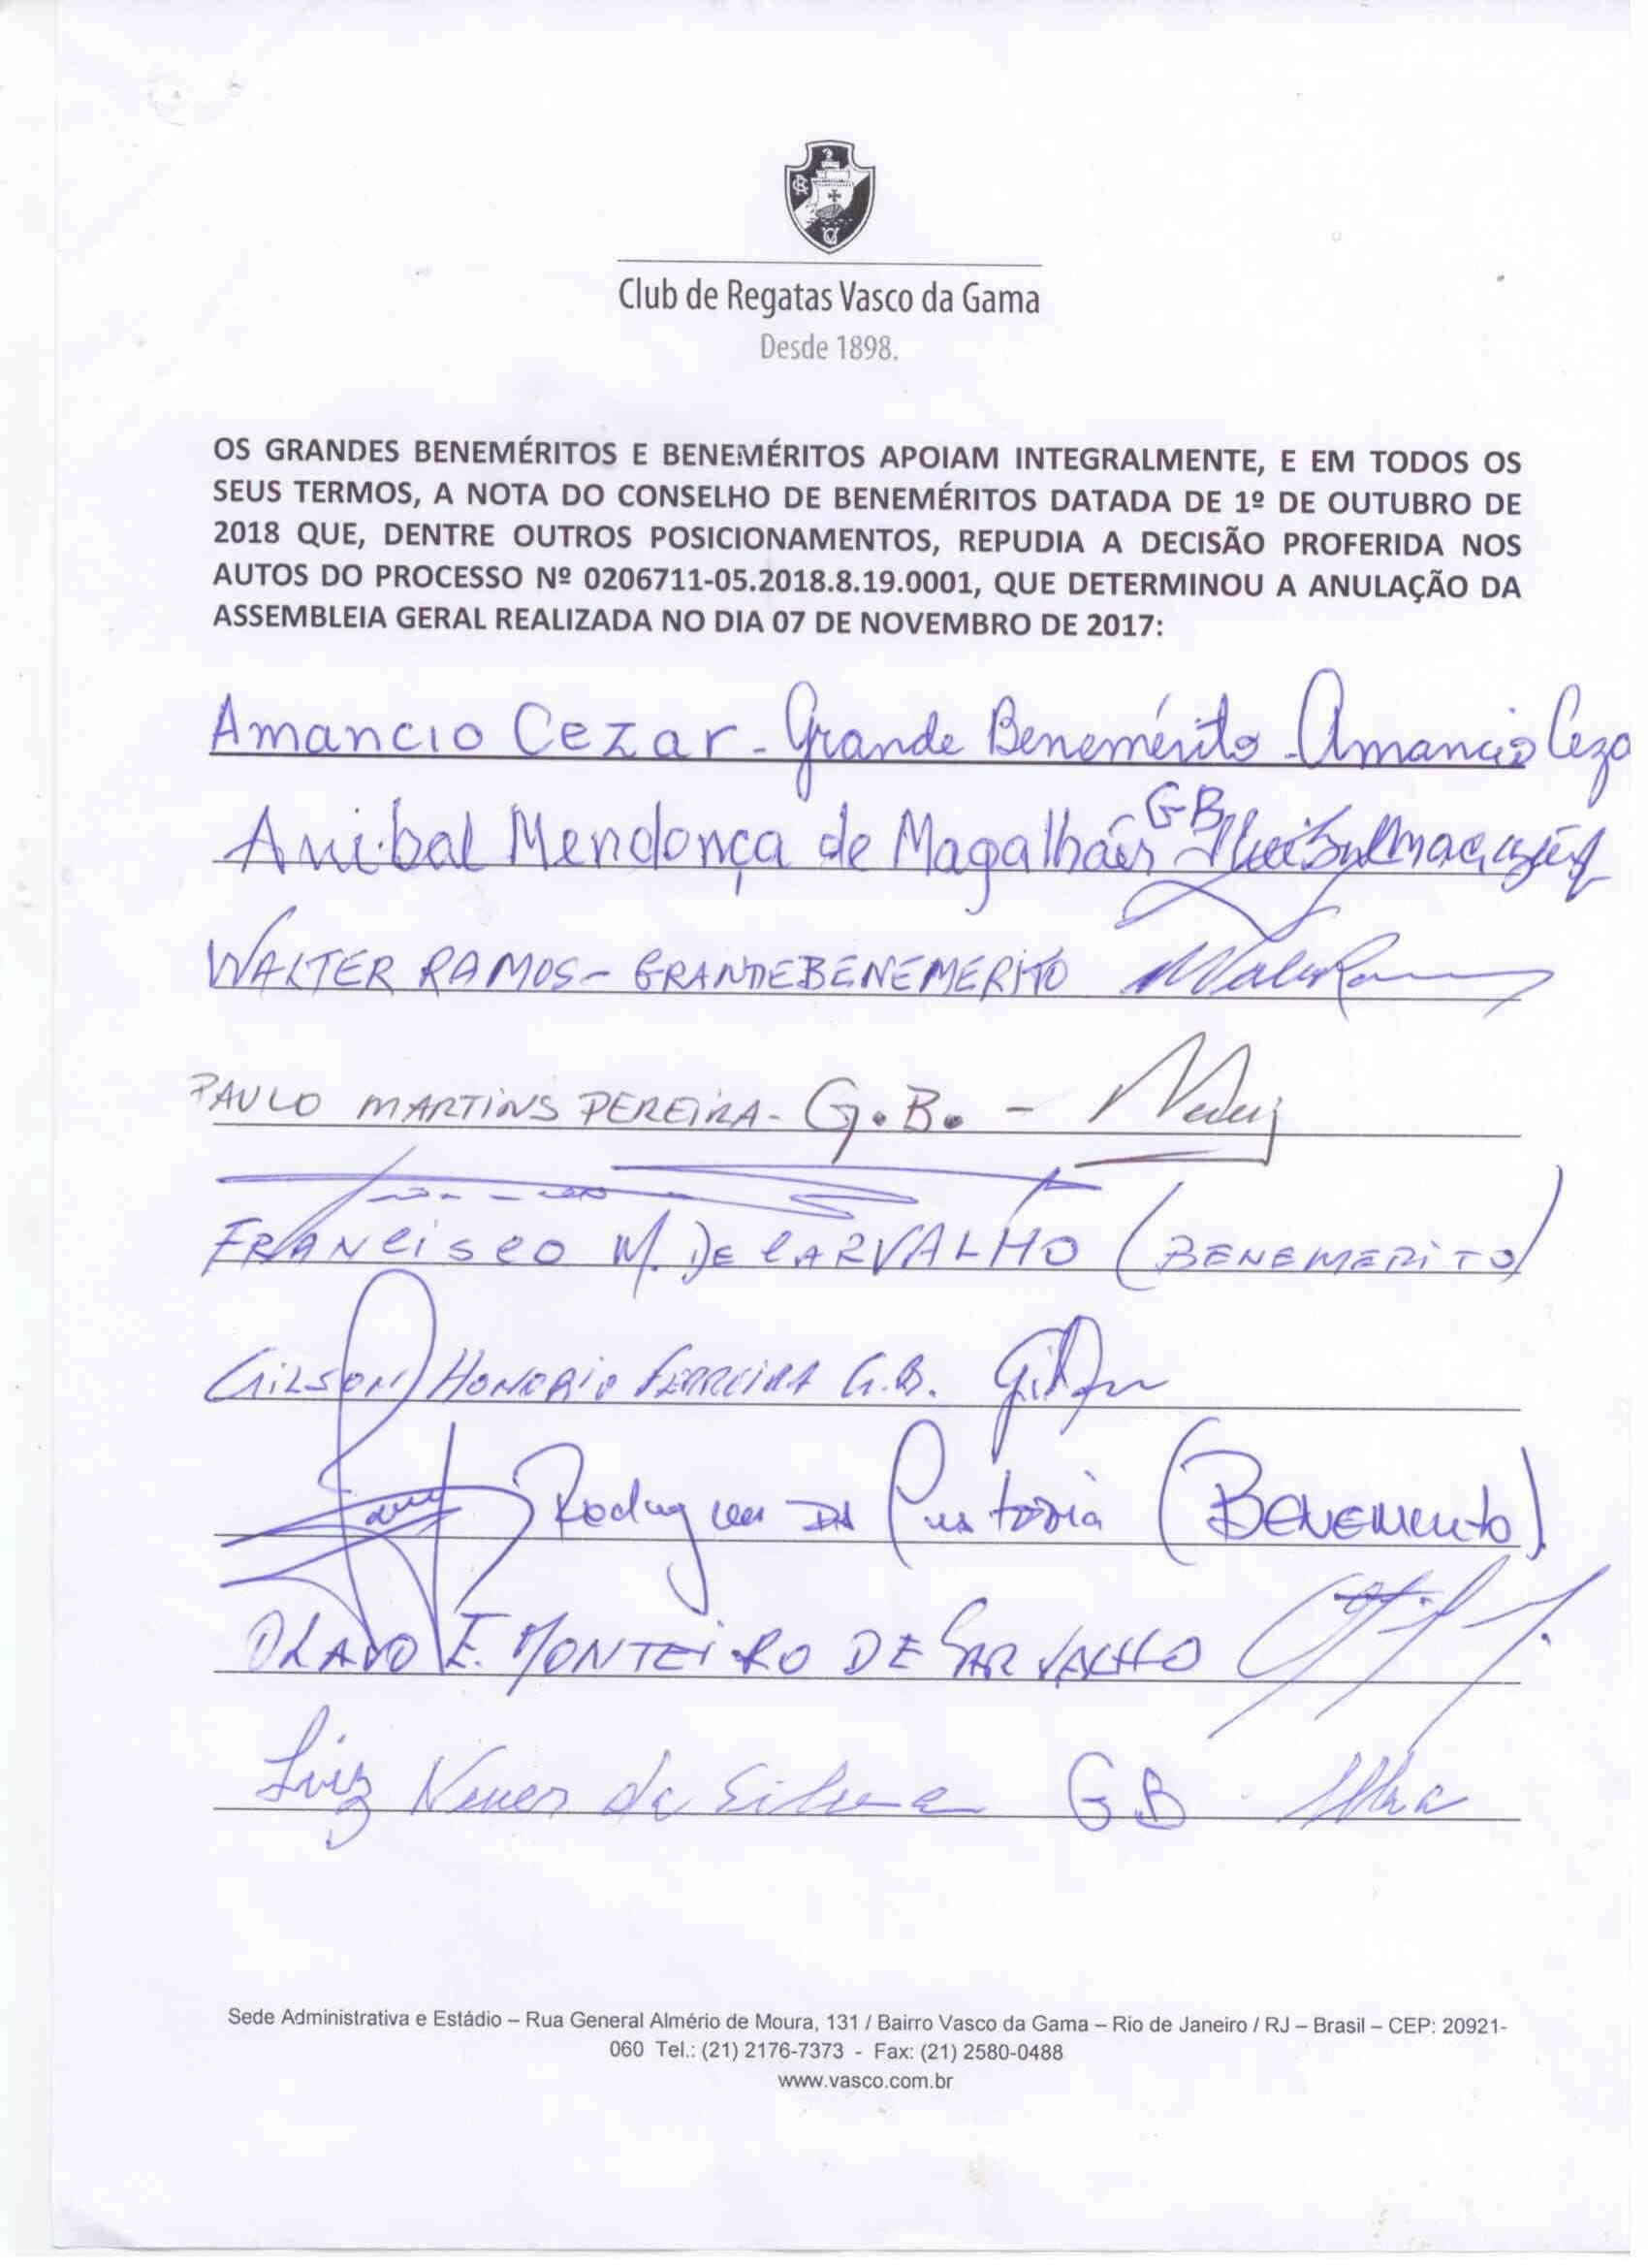 Club de Regatas Vasco da Gama
Desde 1898.
OS GRANDES BENEMÉRITOS E BENEMÉRITOS APOIAM INTEGRALMENTE, E EM TODOS OS
SEUS TERMOS, A NOTA DO CONSELHO DE BENEMÉRITOS DATADA DE 1º DE OUTUBRO DE
2018 QUE, DENTRE OUTROS POSICIONAMENTOS, REPUDIA A DECISÃO PROFERIDA NOS
AUTOS DO PROCESSO Nº 0206711-05.2018.8.19.0001, QUE DETERMINOU A ANULAÇÃO DA
ASSEMBLEIA GERAL REALIZADA NO DIA 07 DE NOVEMBRO DE 2017:
Amancio Cezar - Grande Benemérito - Amancio Ceza
Anibal Mendonça de Magalhães GB
WALTER RAMOS - GRANDEBENEMERITO
PAULO MARTINS PEREIRA - G.B. -
FRANCISCO M. DE CARVALHO (BENEMERITO)
GILSON HONORIO FERREIRA G.B.
Rodrigues Da (BENEMERITO).
OLAVO E. MONTEIRO DE CARVALHO
Luiz Neves da Silva GB
Sede Administrativa e Estádio – Rua General Almério de Moura, 131 / Bairro Vasco da Gama – Rio de Janeiro / RJ – Brasil – CEP: 20921-
060 Tel.: (21) 2176-7373 - Fax: (21) 2580-0488
www.vasco.com.br